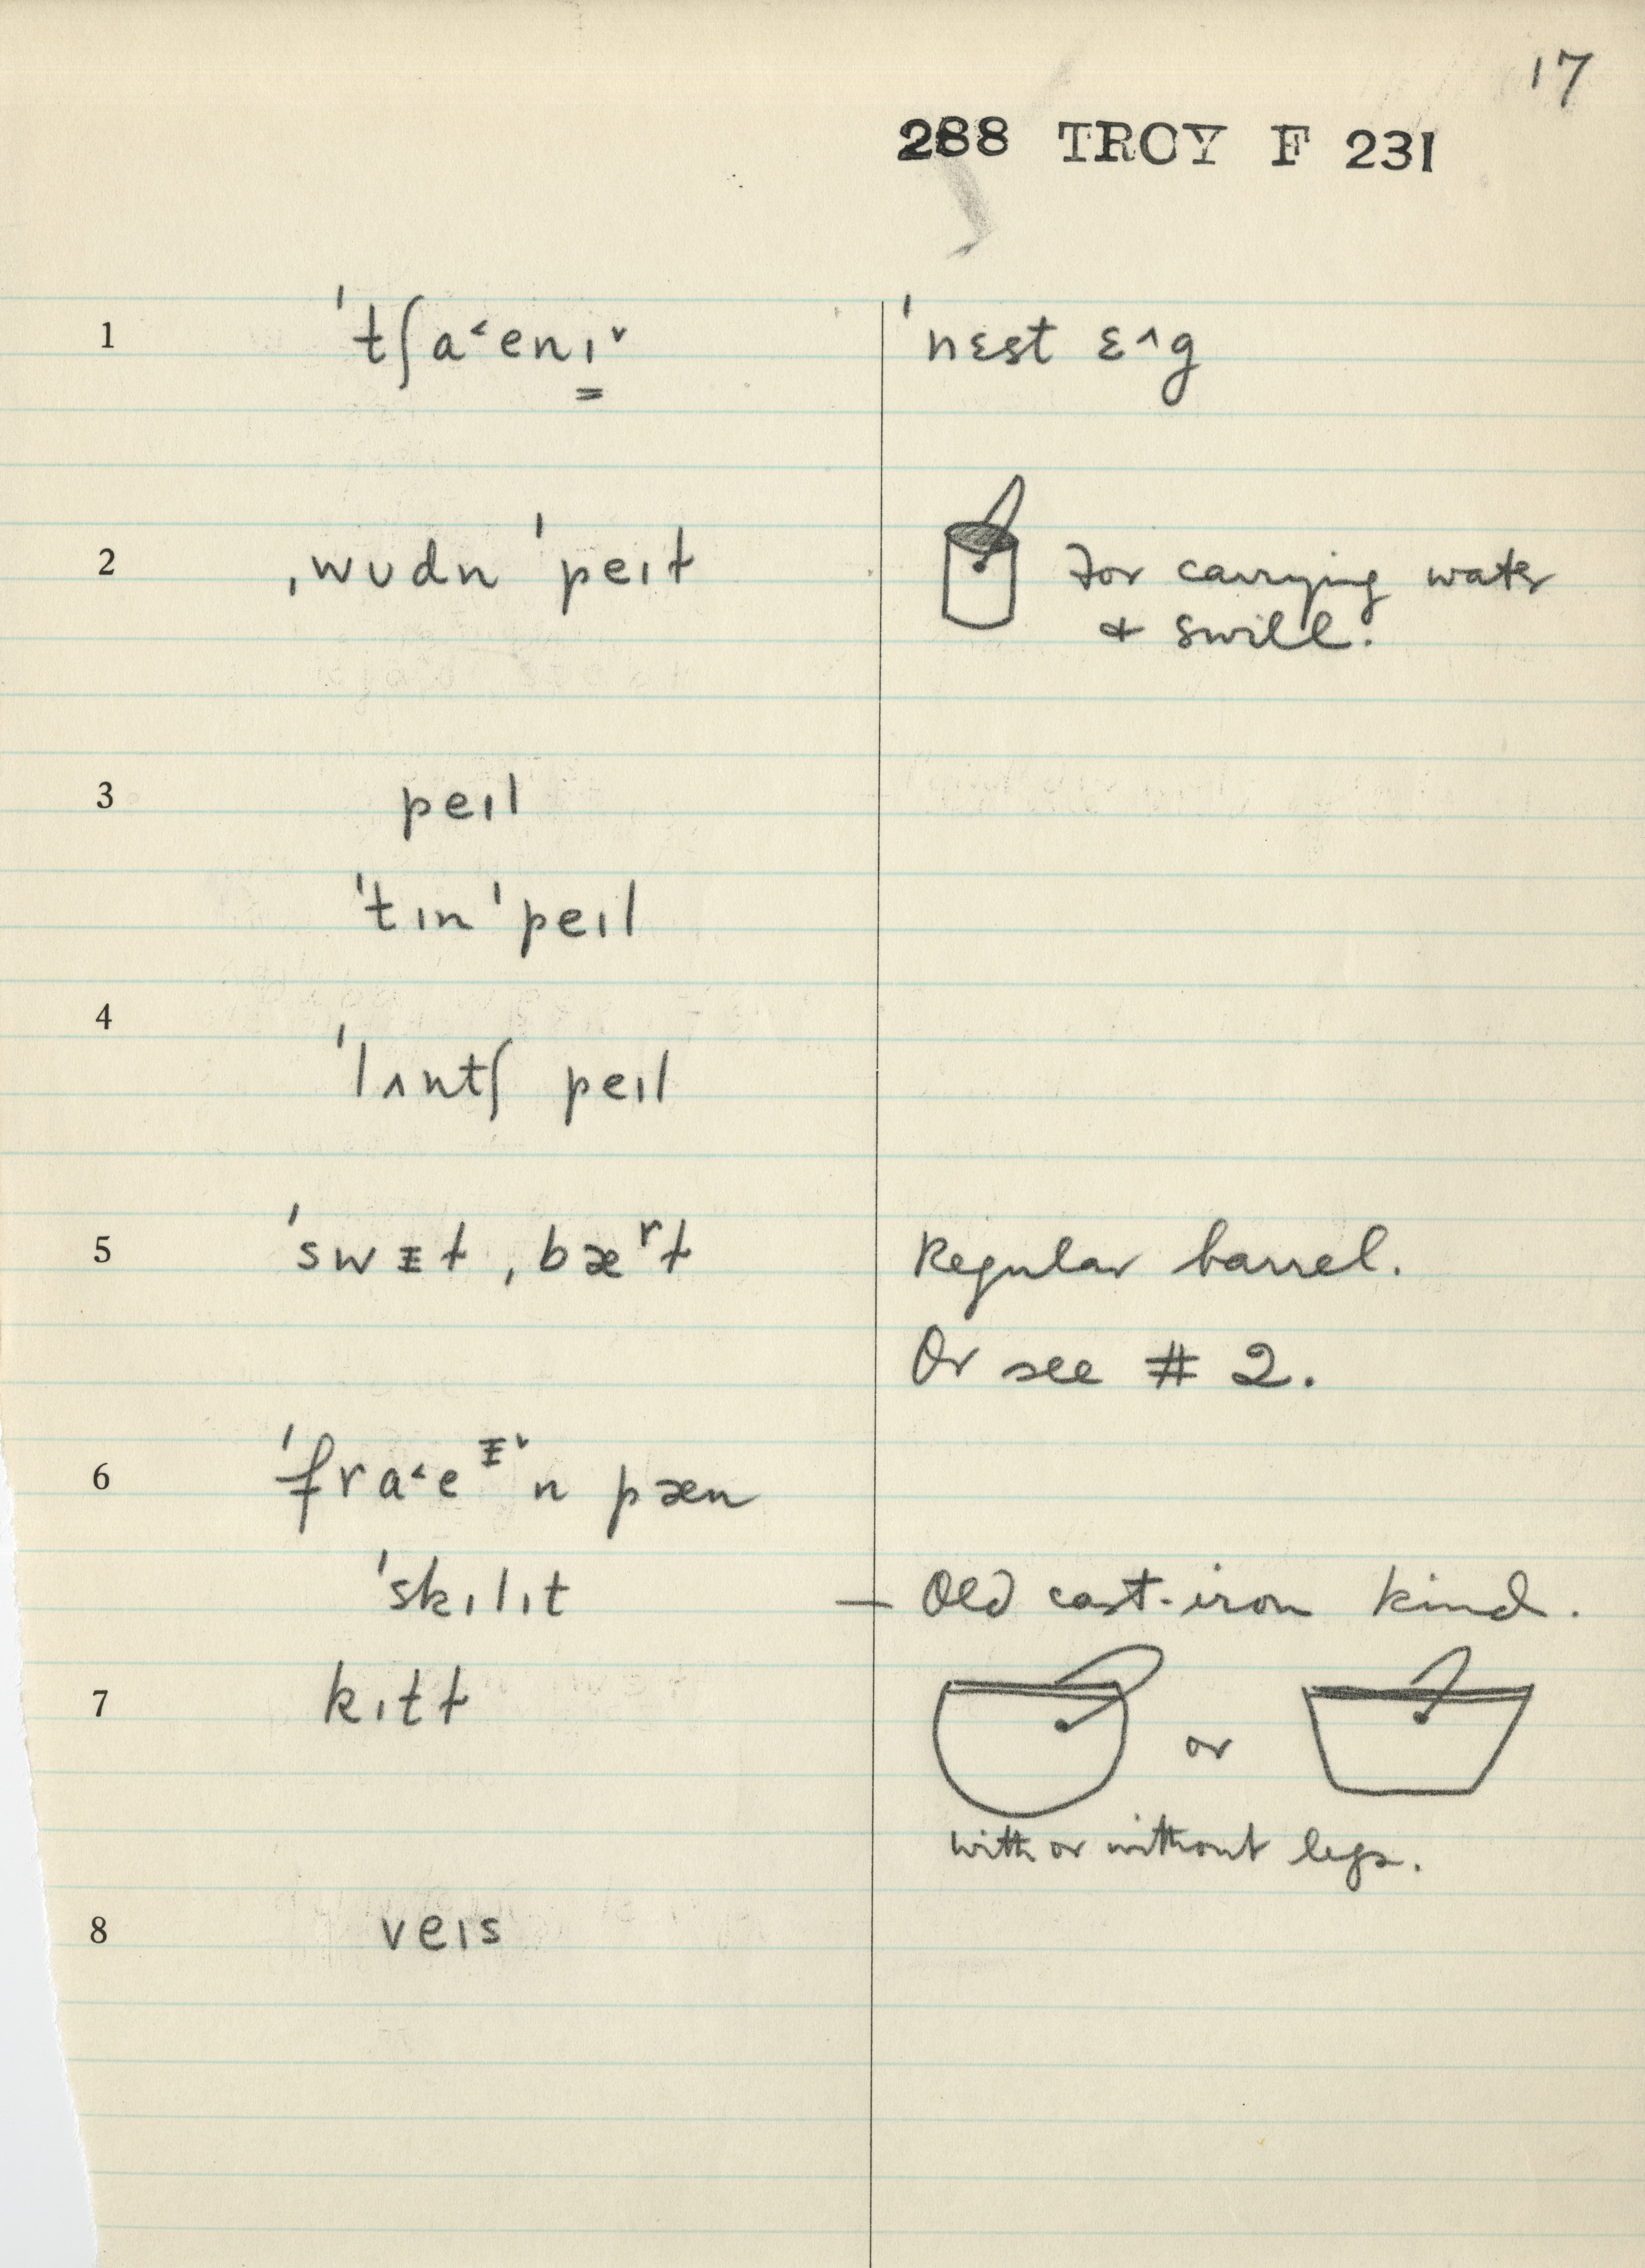 17
288 TROY F 231
1 ˈtʃa˂enɪ̳˅ ˈnɛst ɛ˄g
2 ˌwʊdn ˈpeɪɫ for carrying water
& swill.
3 peɪl
ˈtɪn ˈpeɪl
4
ˈlʌntʃ peɪl
5 ˈswᵻɫ ˌbæʳɫ Regular barrel.
Or see # 2.
6 ˈfra˂eᵻ˅n pæn
ˈskɪlɪt — Old cast-iron kind.
7 kɪtɫ or
with or without legs.
8 veɪs